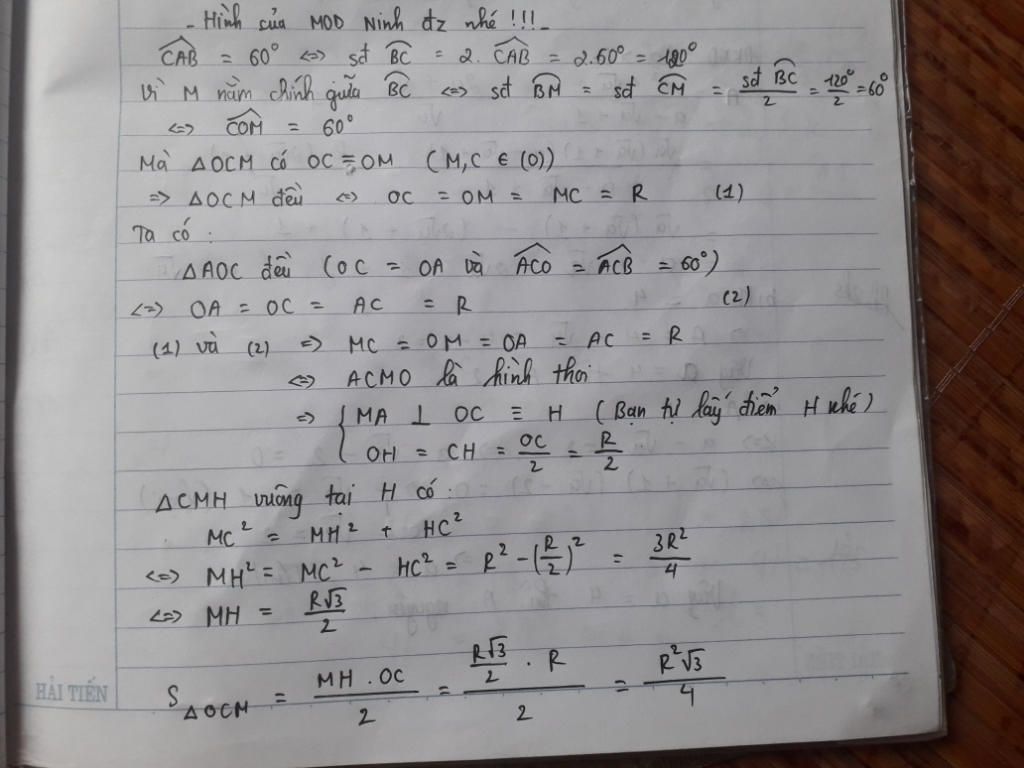 - Hình của MOD Ninh đz nhé !!! -
$\widehat{CAB}$ = 60° <=> sđ $\overset{\frown}{BC}$ = 2. $\widehat{CAB}$ = 2.60° = 120°
Vì M nằm chính giữa $\overset{\frown}{BC}$ <=> sđ $\overset{\frown}{BM}$ = sđ $\overset{\frown}{CM}$ = $\frac{sđ \overset{\frown}{BC}}{2}$ = $\frac{120°}{2}$ = 60°
<=> $\widehat{COM}$ = 60°
Mà △OCM có OC = OM (M,C ∈ (O))
=> △OCM đều <=> OC = OM = MC = R (1)
Ta có :
△AOC đều (OC = OA và $\widehat{ACO}$ = $\widehat{ACB}$ = 60°)
<=> OA = OC = AC = R (2)
(1) và (2) => MC = OM = OA = AC = R
<=> ACMO là hình thoi
=> { MA ⊥ OC ≡ H (Bạn tự lấy điểm H nhé)
OH = CH = $\frac{OC}{2}$ = $\frac{R}{2}$
△CMH vuông tại H có :
MC² = MH² + HC²
<=> MH² = MC² - HC² = R² - ($\frac{R}{2}$)² = $\frac{3R²}{4}$
<=> MH = $\frac{R√3}{2}$
S△OCM = $\frac{MH . OC}{2}$ = $\frac{\frac{R√3}{2} . R}{2}$ = $\frac{R²√3}{4}$
HẢI TIẾN